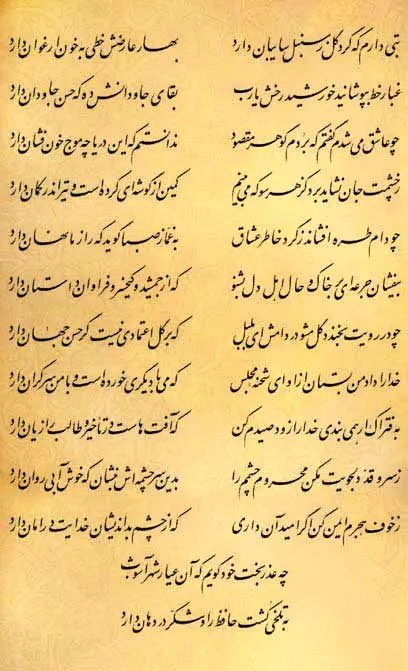 بتی دارم که گرد گل ز سنبل سایبان دارد بهار عارضش خطی به خون ارغوان دارد
غبار خط بپوشانید خورشید رخش یا رب بقای جاودانش ده که حسن جاودان دارد
چو عاشق می‌شدم گفتم که بردم گوهر مقصود ندانستم که این دریا چه موج خون فشان دارد
ز چشمت جان نشاید برد کز هر سو که می‌بینم کمین از گوشه‌ای کرده‌است و تیر اندر کمان دارد
چو دام طره افشاند ز گرد خاطر عشاق به غماز صبا گوید که راز ما نهان دارد
بیفشان جرعه‌ای بر خاک و حال اهل دل بشنو که از جمشید و کیخسرو فراوان داستان دارد
چو در رویت بخندد گل مشو در دامش ای بلبل که بر گل اعتمادی نیست گر حسن جهان دارد
خدا را داد من بستان از او ای شحنه مجلس که می با دیگری خورده‌است و با من سر گران دارد
به فتراک ار همی‌بندی خدا را زود صیدم کن که آفت‌هاست در تاخیر و طالب را زیان دارد
ز سرو قد دلجویت مکن محروم چشمم را بدین سرچشمه‌اش بنشان که خوش آبی روان دارد
ز خوف هجرم ایمن کن اگر امید آن داری که از چشم بداندیشان خدایت در امان دارد
چه عذر بخت خود گویم که آن عیار شهرآشوب
به تلخی کشت حافظ را و شکر در دهان دارد